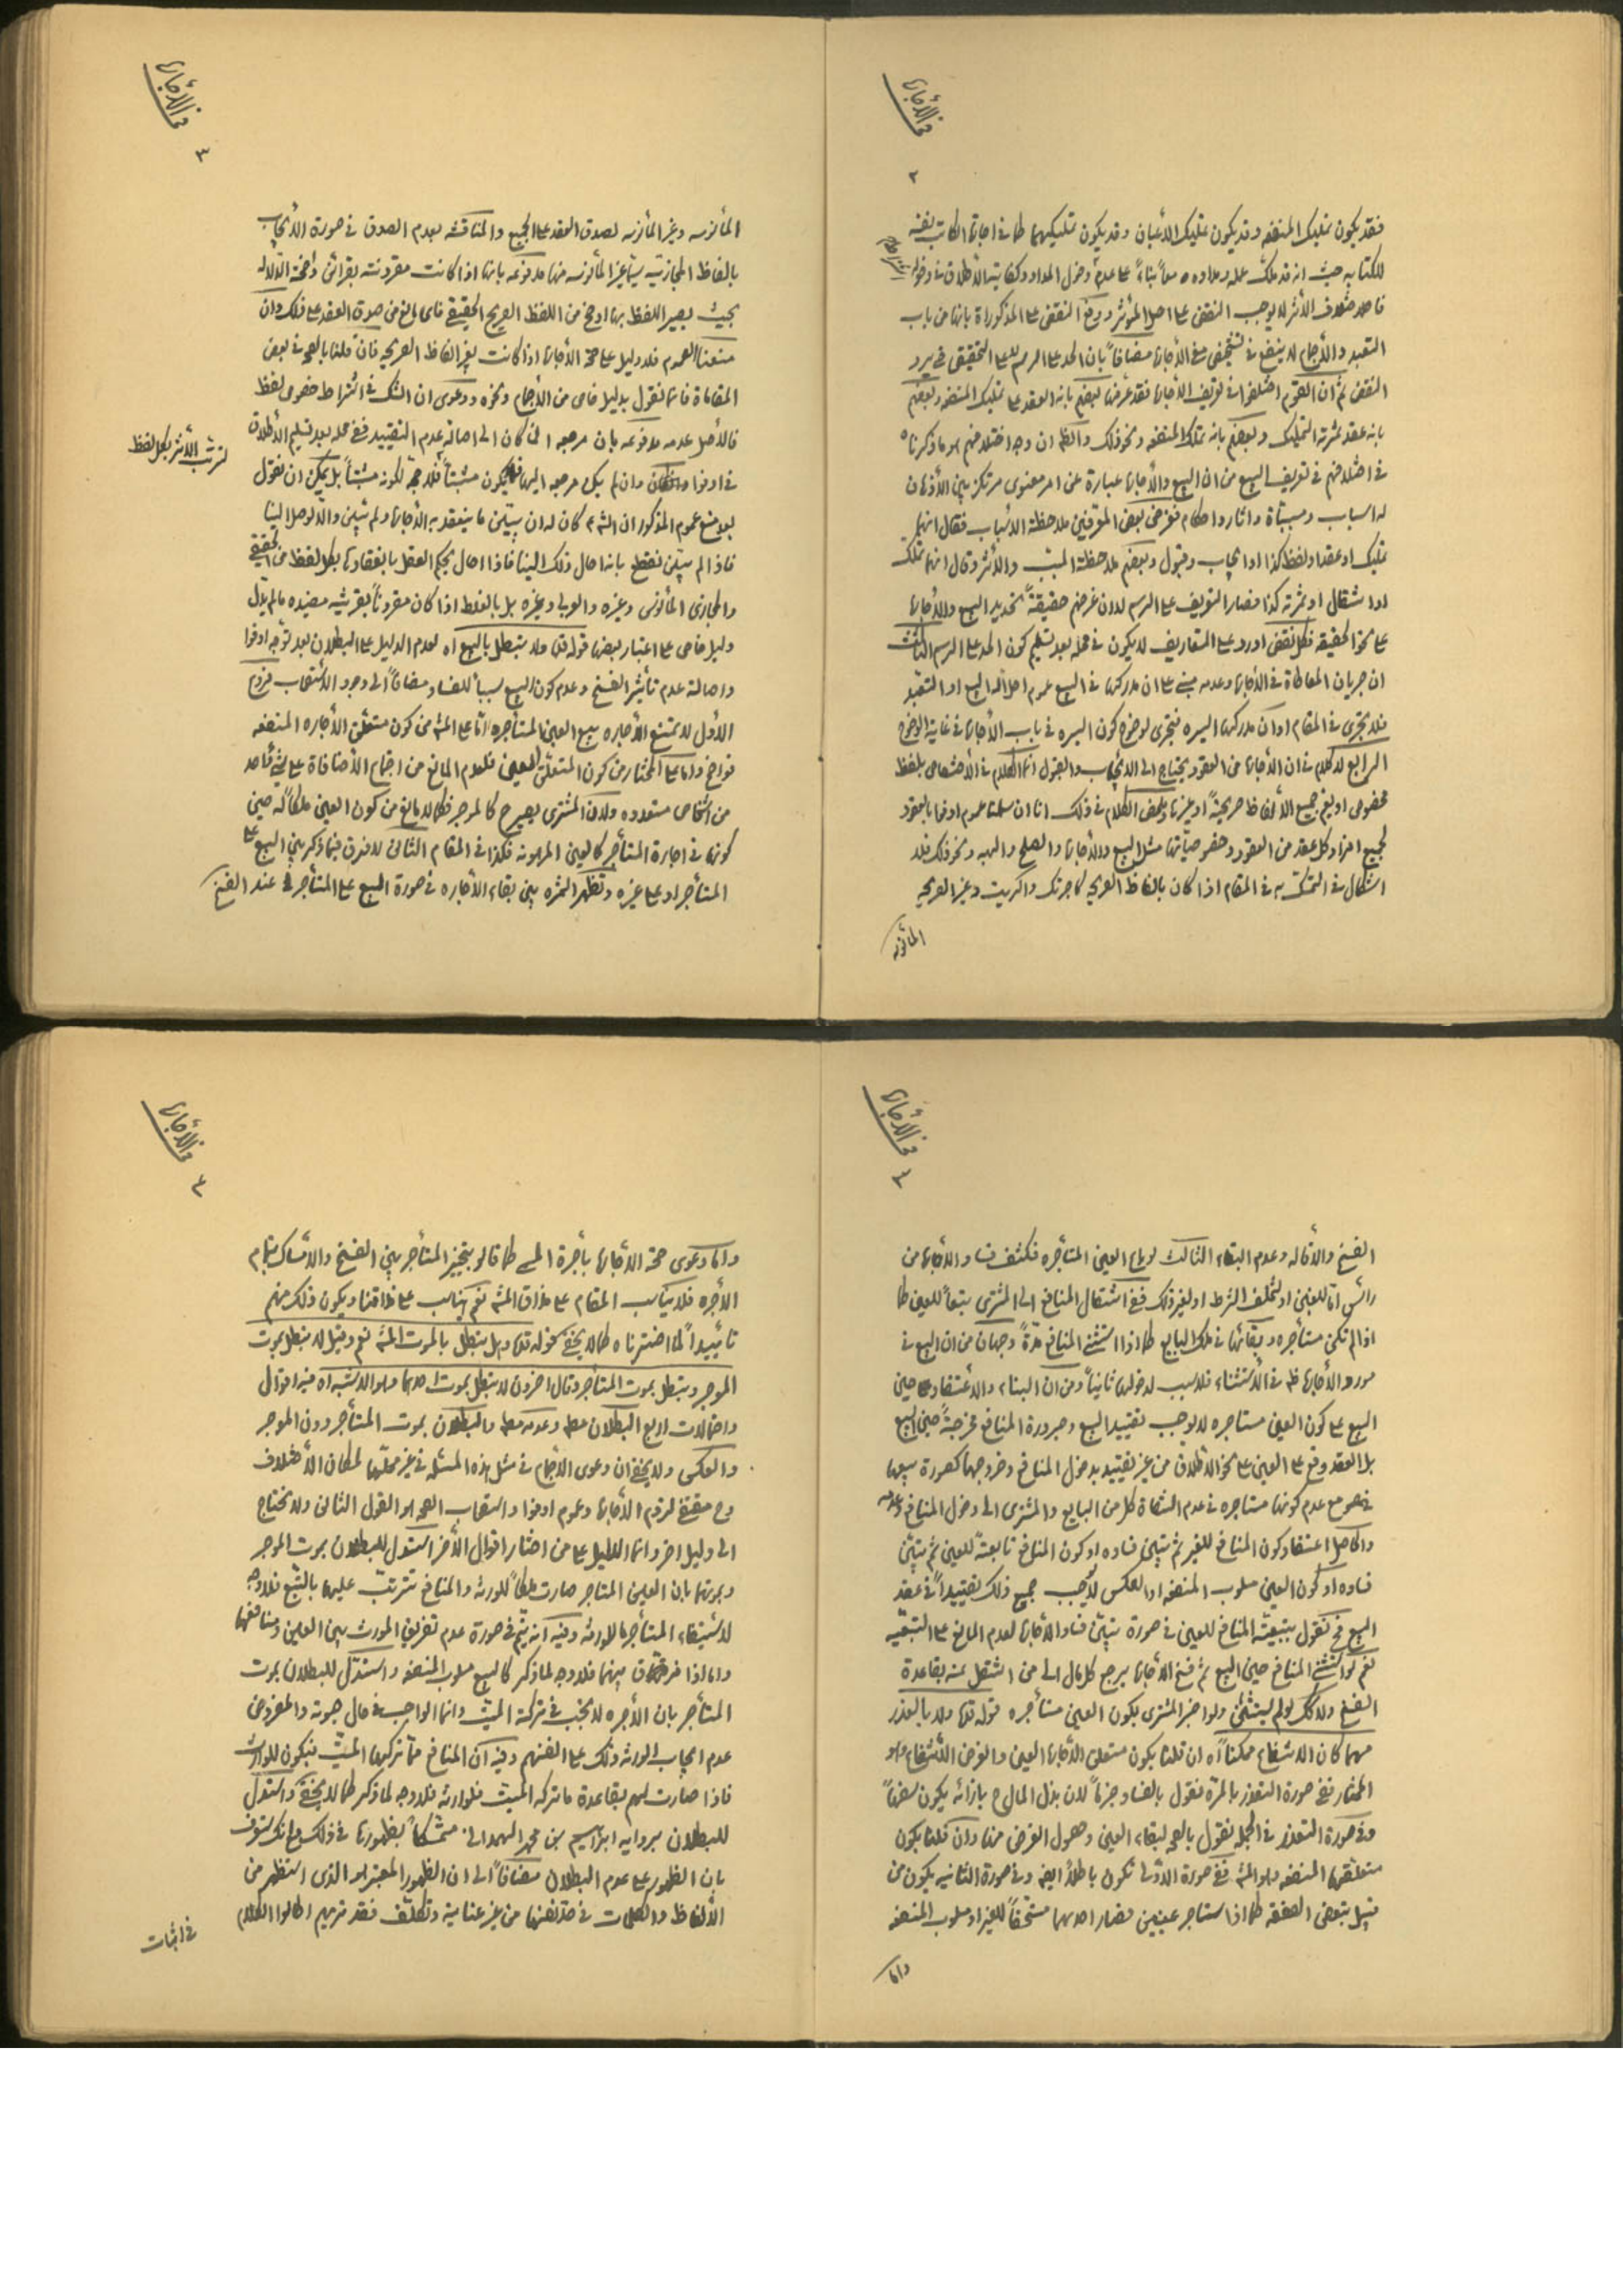 في الأجارة
٢
فقد يكون تمليك المنفعه وقد يكون تمليك الأعيان وقد يكون تمليكهما كما في اجارة الكاتب نفسه
للكتابه حيث انه قد ملك عمله ومداده معاً بناءً على عدم دخول المداد وكفاية الأطلاق في دخوله
التعبد والأجماع لا ينفع في تشخيص معنى الأجارة مضافاً بان الحد على الرسم لا على التحقيقي في يرد
النقض ثم ان القوم اختلفوا في تعريف الأجارة فقد عرفها بعضهم بانه العقد على تمليك المنفعه وبعضهم
بانه عقد ثمرته التمليك وبعضهم بانه تملك المنفعه ونحو ذلك والظ ان وجه اختلافهم هو ما ذكرناه
في اختلافهم في تعريف البيع من ان البيع والأجارة عبارة عن امر معنوى مرتكز بين الأذهان
له اسباب ومسببات واثار واحكام فغرض بعض المعرفين ملاحظة الأسباب فقال انهما
تمليك او عقد او لفظ كذا او ايجاب وقبول وبعضهم ملاحظة المسبب والأثر وقال انهما تملك
او انتقال او ثمرته كذا فصار التعريف على الرسم لا ان غرضهم حقيقةً تحديد البيع والأجارة
على نحو الحقيقه فكل نقض اورد على التعاريف لا يكون في محله بعد تسليم كون الحد على الرسم الثالث
ان جريان المعاطاة في الأجارة وعدمه مبني على ان مدركها في البيع عموم احل الله البيع او التعبد
فلا يجرى في المقام او ان مدركها السيره فيجرى لوضوح كون السيره في باب الأجارة في غاية الوضوح
الرابع لا كلام في ان الأجارة من العقود يحتاج الى الأيجاب والقبول انما الكلام في الأختصاص بلفظ
مخصوص او يعم جميع الألفاظ صريحةً او غيرها وملخص الكلام في ذلك انا ان سلمنا عموم اوفوا بالعقود
لجميع افراد كل عقد من العقود وخصوصياتها مثل البيع والأجارة والصلح والهبه ونحو ذلك فلا
اشكال في التمسك به في المقام اذا كان بالفاظ الصريحه كاجرتك واكريت وغير الصريحه
المأنوسه
في الأجارة
٣
المأنوسه وغير المأنوسه لصدق العقد على الجميع والمناقشه بعدم الصدق في صورة الأيجاب
بالفاظ المجازيّه سيّما غير المأنوسه منها مدفوعه بانها اذا كانت مقرونته بقرائن واضحة الدلاله
بحيث يصير اللفظ بها اوضح من اللفظ الصريح الحقيقي فاى مانع من صدق العقد على ذلك وان
منعنا العموم فلا دليل على صحة الأجارة اذا كانت بغير الفاظ الصريحه فان قلنا بالصحه في بعض
المقامات فانما نقول بدليل خاص من الأجماع ونحوه ودعوى ان الشك في اشتراط خصوص لفظ
فالأصل عدمه مدفوعه بان مرجعه ان كان الى اصالة عدم التقييد ففي محله بعد تسليم الأطلاق
في اوفوا وان لم يكن مرجعه اليها فلا حجة لكونه مثبتاً بل يمكن ان نقول
لترتب الأثر بكل لفظ
بعد منع عموم المذكور ان الشارع كان له ان يبيّن ما ينعقد به الأجارة ولم يبيّن والا لوصل الينا
فاذا لم يبيّن نقطع بانه احال ذلك الينا فاذا احال بحكم العقل بانعقادها بكل لفظ من الحقيقي
والمجازى المأنوس وغيره والعربى وغيره بل بالغلط اذا كان مقروناً بقرينه مفيده ما لم يدل
دليل خاص على اعتبار بعضها قوله قده ولا يبطل بالبيع اه لعدم الدليل على البطلان بعد توجه اوفوا
واصالة عدم تأثير الفسخ وعدم كون البيع سبباً للفساد مضافاً الى وجود الأستصحاب فروع
الأول لا يمتنع الأجاره ببيع العين المستأجره امّا على المش من كون متعلق الأجاره المنفعه
فواضح واما على المختار من كون المتعلق العين فلعدم المانع من اجتماع الأضافات على شئ واحد
من اشخاص متعدده ولان المشترى يصير ح كالموجر فكما لا مانع من كون العين ملكاً له حين
كونها في اجارة المستأجر كالعين المرهونه فكذا في المقام الثانى لا فرق فيما ذكر بين البيع على
المستأجر او على غيره وتظهر الثمره بين بقاء الأجاره في صورة البيع على المستأجر في عند الفسخ
في الأجارة
٣
الفسخ والأقاله وعدم البقاء الثالث لو باع العين المستأجره فكشف فساد الأجارة من
رأس امّا للغبن او لتخلف الشرط او لغير ذلك ففي انتقال المنافع الى المشترى تبعاً للعين كما
اذا لم تكن مستأجره وبقائها في ملك البايع كما اذا استثنى المنافع مدةً وجهان من ان البيع في
مورد الأجارة ظ في الأستثناء فلا سبب لدخولها ثانياً ومن ان البناء والأعتقاد حين
البيع على كون العين مستاجره لا يوجب تقييد البيع وصيرورة المنافع مخرجةً حين البيع
بل العقد وقع على العين على نحو الأطلاق من غير تقييد بدخول المنافع وخروجها كصورة بيعها
مع عدم كونها مستاجره في عدم التفات كل من البايع والمشترى الى دخول المنافع وعدمه
والحاصل اعتقاد كون المنافع للغير ثم يتبيّن فساده او كون المنافع تابعتة للعين ثم يتبيّن
فساده او كون العين مسلوب المنفعه او العكس لا يوجب جميع ذلك تقييداً في عقد
البيع فح نقول بتبعيّة المنافع للعين في صورة تبيّن فساد الأجارة لعدم المانع على التبعيّه
نعم لو استثنى المنافع حين البيع ثم فسخ الأجارة يرجع كل مال الى من انتقل عنه بقاعدة
الفسخ وكذلك لو لم يستثنى ولو اخبر المشترى بكون العين مستأجره قوله قده ولا بالعذر
مهما كان الأنتفاع ممكناً اه ان قلنا بكون متعلق الأجارة العين والغرض الأنتفاع وهو
المختار ففي صورة التعذر بالمرّة نقول بالفساد جزماً لان بذل المال ح بازائه يكون سفهاً
وفي صورة التعذر في الجمله نقول بالصحه لبقاء العين وحصول الغرض منها وان قلنا بكون
متعلقها المنفعه وهو المش ففي صورة الأولى تكون باطلاً ايضا وفي صورة الثانيه يكون من
قبيل تبعض الصفقه كما اذا استاجر عينين فصار احدهما مستحقاً للغير او مسلوب المنفعه
واما
في الأجارة
٤
واما دعوى صحة الأجارة بأجرة المسمى كما قالو بتخيير المستأجر بين الفسخ والأمساك بتمام
الأجره فلا يناسب المقام على مذاق المش نعم يناسب على مذاقنا ويكون ذلك منهم
تأييداً لما اخترناه كما لا يخفى قوله قده وهل يبطل بالموت المش نعم وقيل لا يبطل بموت
الموجر ويبطل بموت المستأجر وقال اخرون لا يبطل بموت احدهما وهو الأشبه اه فيه اقوال
واحتمالات اربع البطلان مط وعدمه مط والبطلان بموت المستأجر دون الموجر
والعكس ولا يخفى ان دعوى الأجماع في مثل هذه المسئله في غير محلها لمكان الأختلاف
وح مقتضى لزوم الأجارة وعموم اوفوا واستصحاب الصحه هو القول الثانى ولا يحتاج
الى دليل اخر وانما الدليل على من اختار اقوال الأخر استدل للبطلان بموت الموجر
وبموتهما بان العين المستاجر صارت ملكاً للورثه والمنافع تترتب عليها بالتبع فلا وجه
لأستيفاء المستأجر ما للورثه وفيه انه يتم في صورة عدم تفريق المورث بين العين ومنافعها
واما اذا فرّق بينهما فلا وجه لما ذكر كالبيع مسلوب المنفعه واستدل للبطلان بموت
المستأجر بان الأجره لا تجب في تركة الميت وانما الواجب في مال حيوته والمفروض
عدم ايجاب الورثه ذلك على انفسهم وفيه ان المنافع مما تركها الميت فيكون للوارث
فاذا صارت لهم بقاعدة ما تركه الميت فلوارثه فلا وجه لما ذكر كما لا يخفى واستدل
للبطلان بروايه ابراهيم بن محمد الهمدانى متمسكاً بظهورها في ذلك مع انك ستعرف
بان الظهور على عدم البطلان مضافاً الى ان الظهور المعتبر هو الذى استظهر من
الألفاظ والكلمات في حد نفسها من غير عناية وتكلف فقد تريهم اطالوا الكلام
في اثبات